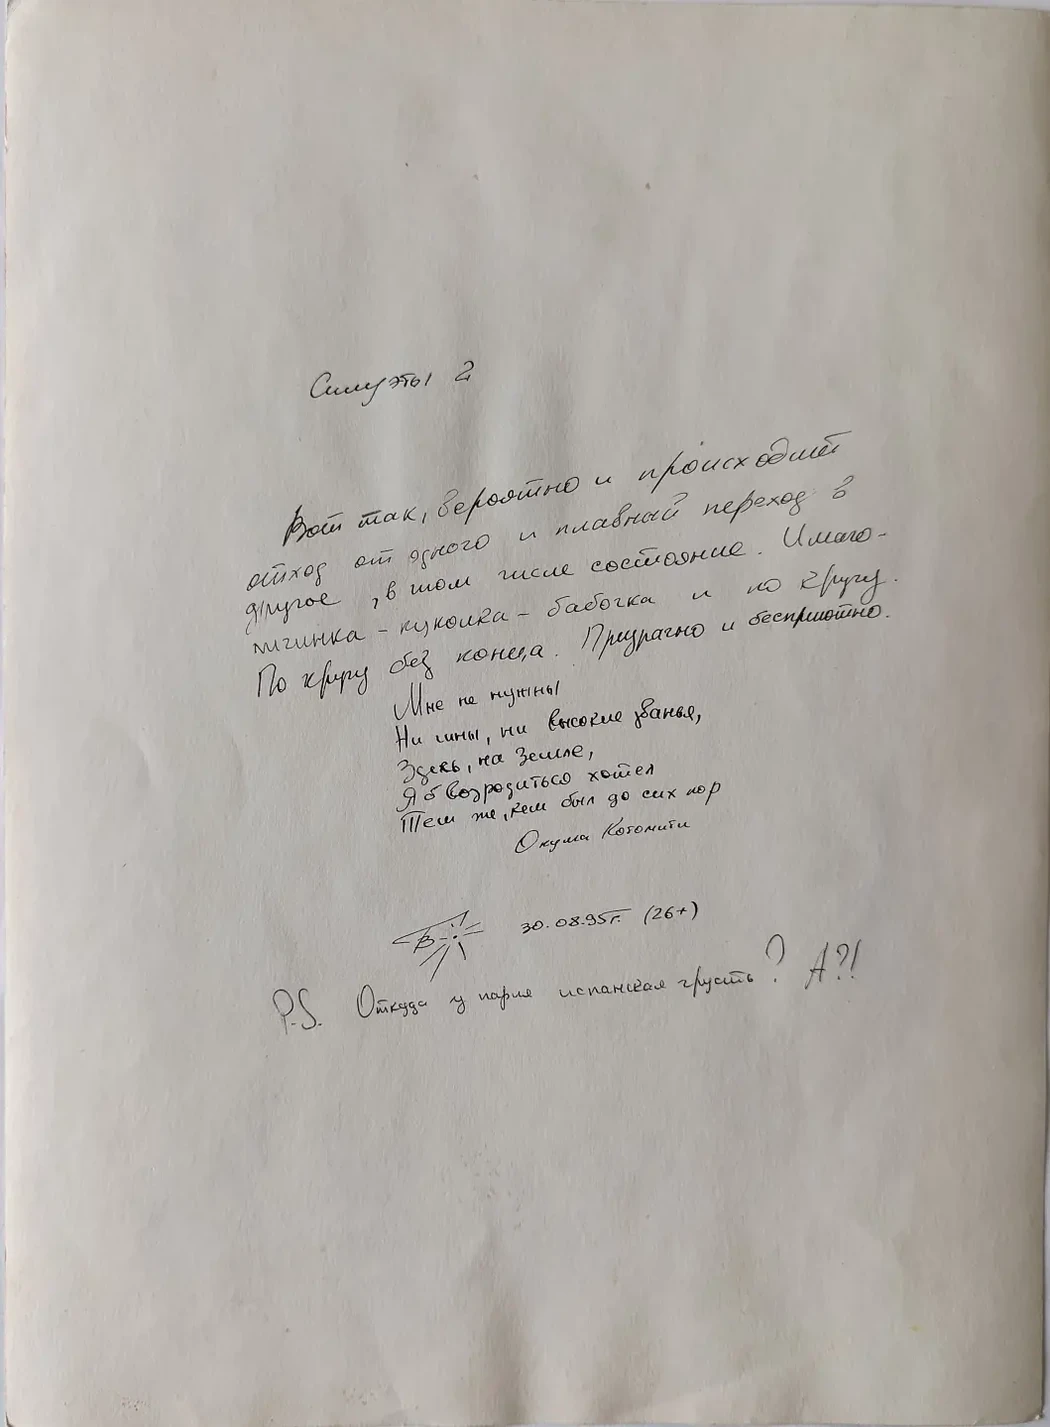 Силуэты 2
Вот так, вероятно и происходит
отход от одного и плавный переход в
другое, в том числе состояние. Имаго-
личинка - куколка - бабочка и по кругу.
По кругу без конца. Призрачно и бесприютно.
Мне не нужны
Ни чины, ни высокие званья,
Здесь, на Земле,
Я б возродиться хотел
Тем же, кем был до сих пор
Окума Котомити
30.08.95г. (26+)
P.S. Откуда у парня испанская грусть? А?!